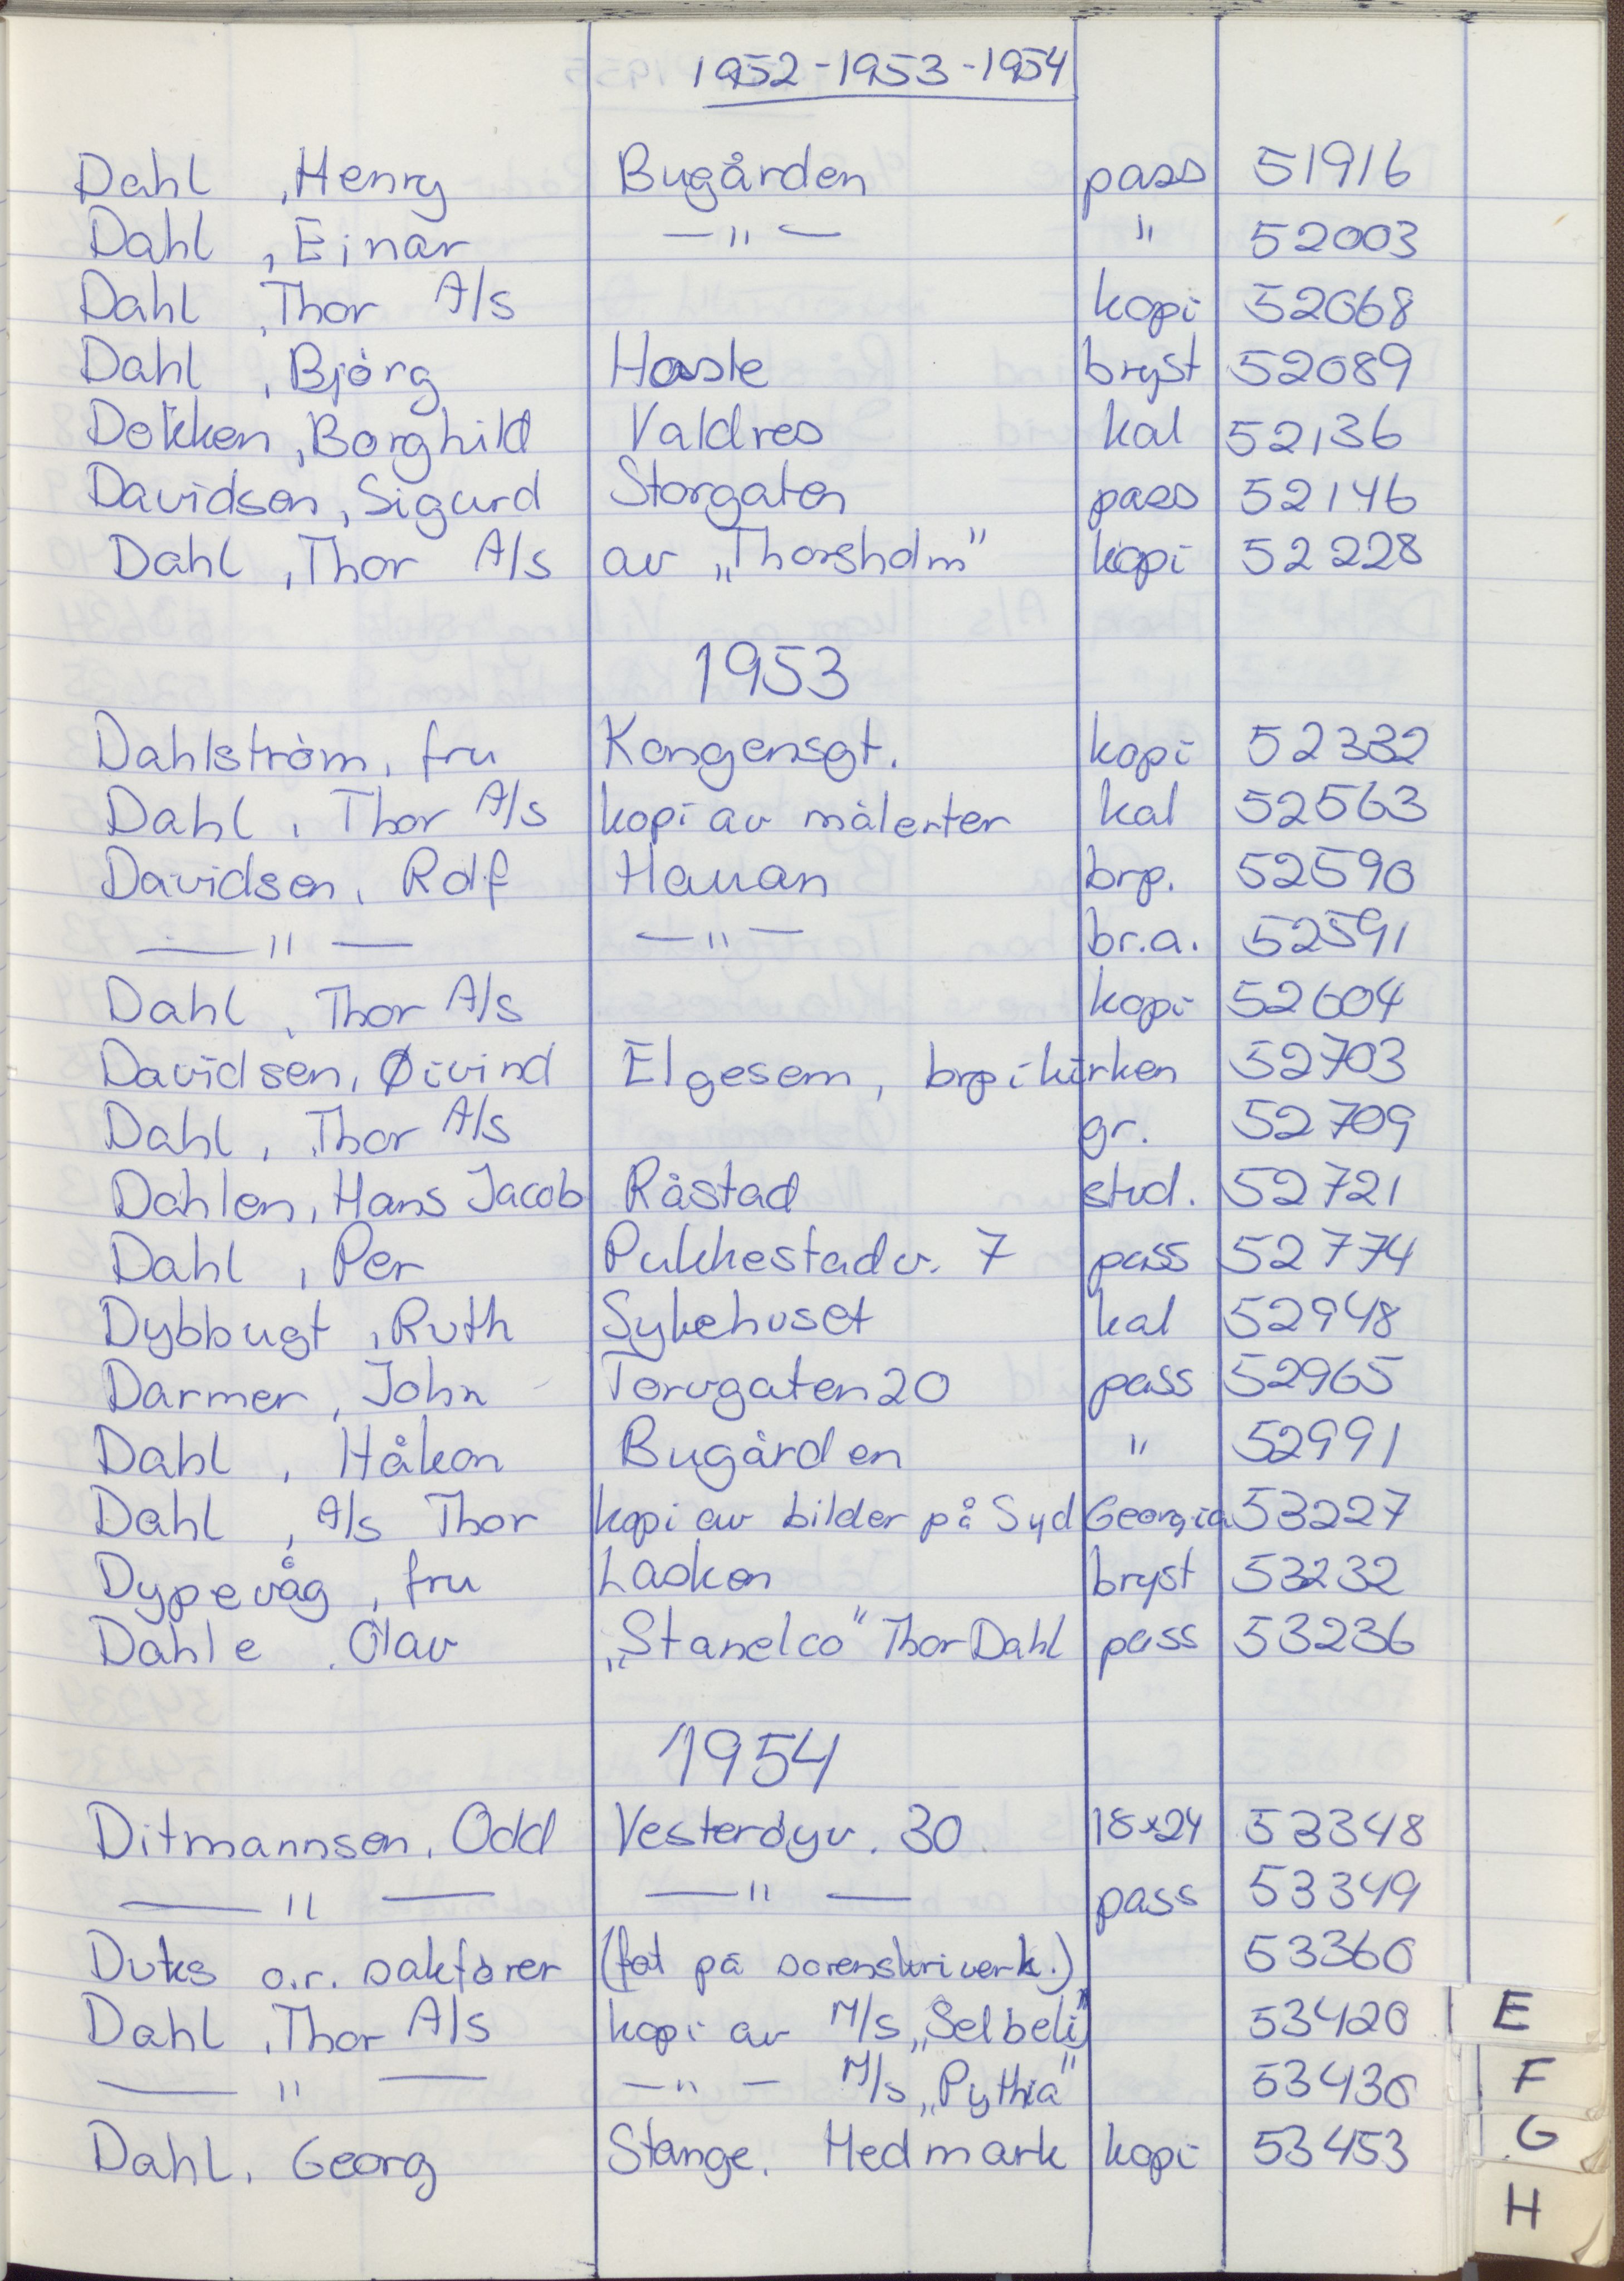 1952-1953-1954
Dahl, Henry Bugården pass 51916
Dahl, Einar —"— " 52003
Dahl, Thor A/s kopi 52068
Dahl, Bjørg Hasle bryst 52089
Dokken, Borghild Valdres kal 52136
Davidsen, Sigurd Storgaten pass 52146
Dahl, Thor A/s av „Thorsholm" kopi 52228
1953
Dahlstrøm, fru Kongensgt. kopi 52332
Dahl, Thor A/s kopi av målerier kal 52563
Davidsen, Rolf Hauan brp. 52590
—"— —"— br.a. 52591
Dahl, Thor A/s kopi 52604
Davidsen, Øivind Elgesem, brp i kirken 52703
Dahl, Thor A/s gr. 52709
Dahlen, Hans Jacob Råstad stud. 52721
Dahl, Per Pukkestadv. 7 pass 52774
Dybbugt, Ruth Sykehuset kal 52948
Darmer, John Torvgaten 20 pass 52965
Dahl, Håkon Bugården " 52991
Dahl, A/s Thor kopi av bilder på Syd Georgia 53227
Dypevåg, fru Lasken bryst 53232
Dahle, Olav „Stanelco" Thor Dahl pass 53236
1954
Ditmannsen, Odd Vesterøyv. 30 18x24 53348
—"— —"— pass 53349
Duks o.r. sakfører (fot på sorenskriverk.) 53360
Dahl, Thor A/s kopi av M/s „Selbeli" 53420
—"— —"— M/s „Pythia" 53430
Dahl, Georg Stange. Hedmark kopi 53453
E
F
G
H